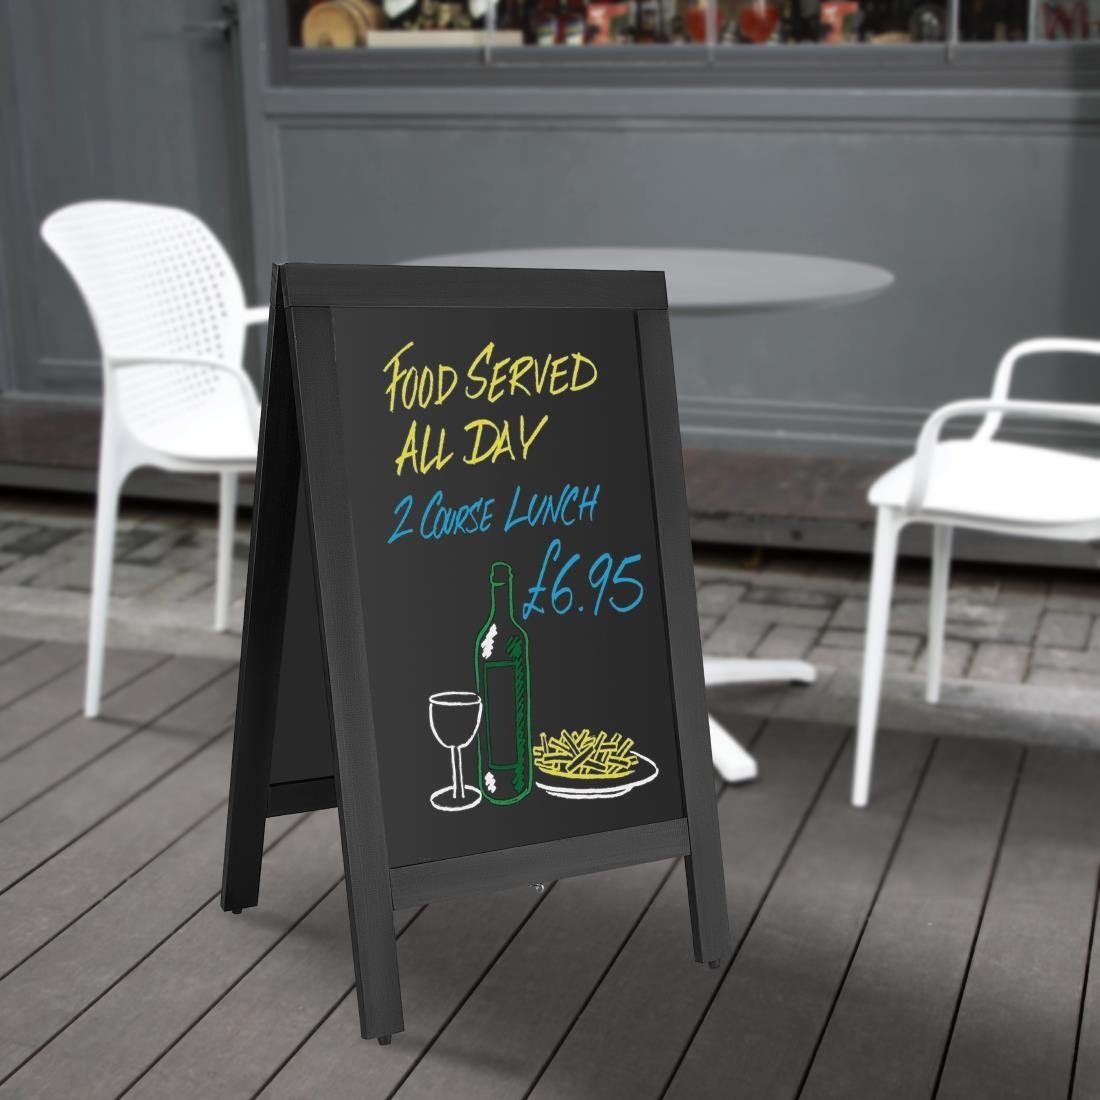 FOOD SERVED
ALL DAY
2 COURSE LUNCH
£6.95